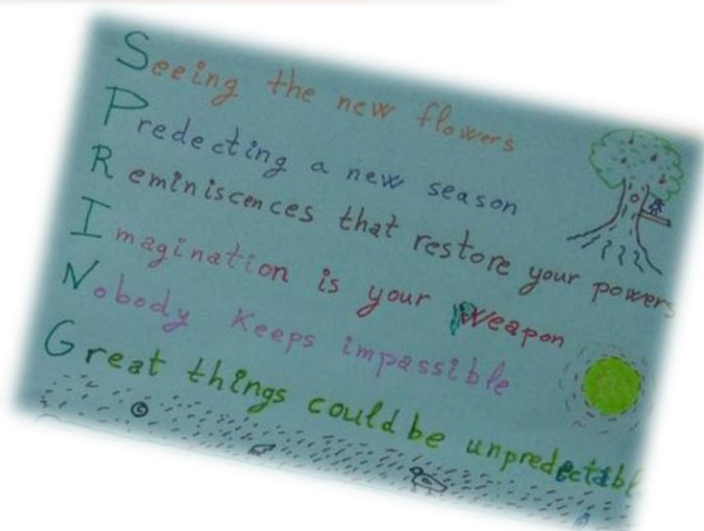 Seeing the new flowers
Predecting a new season
Reminiscences that restore your powers
Imagination is your weapon
Nobody Keeps impassible
Great things could be unpredectabl